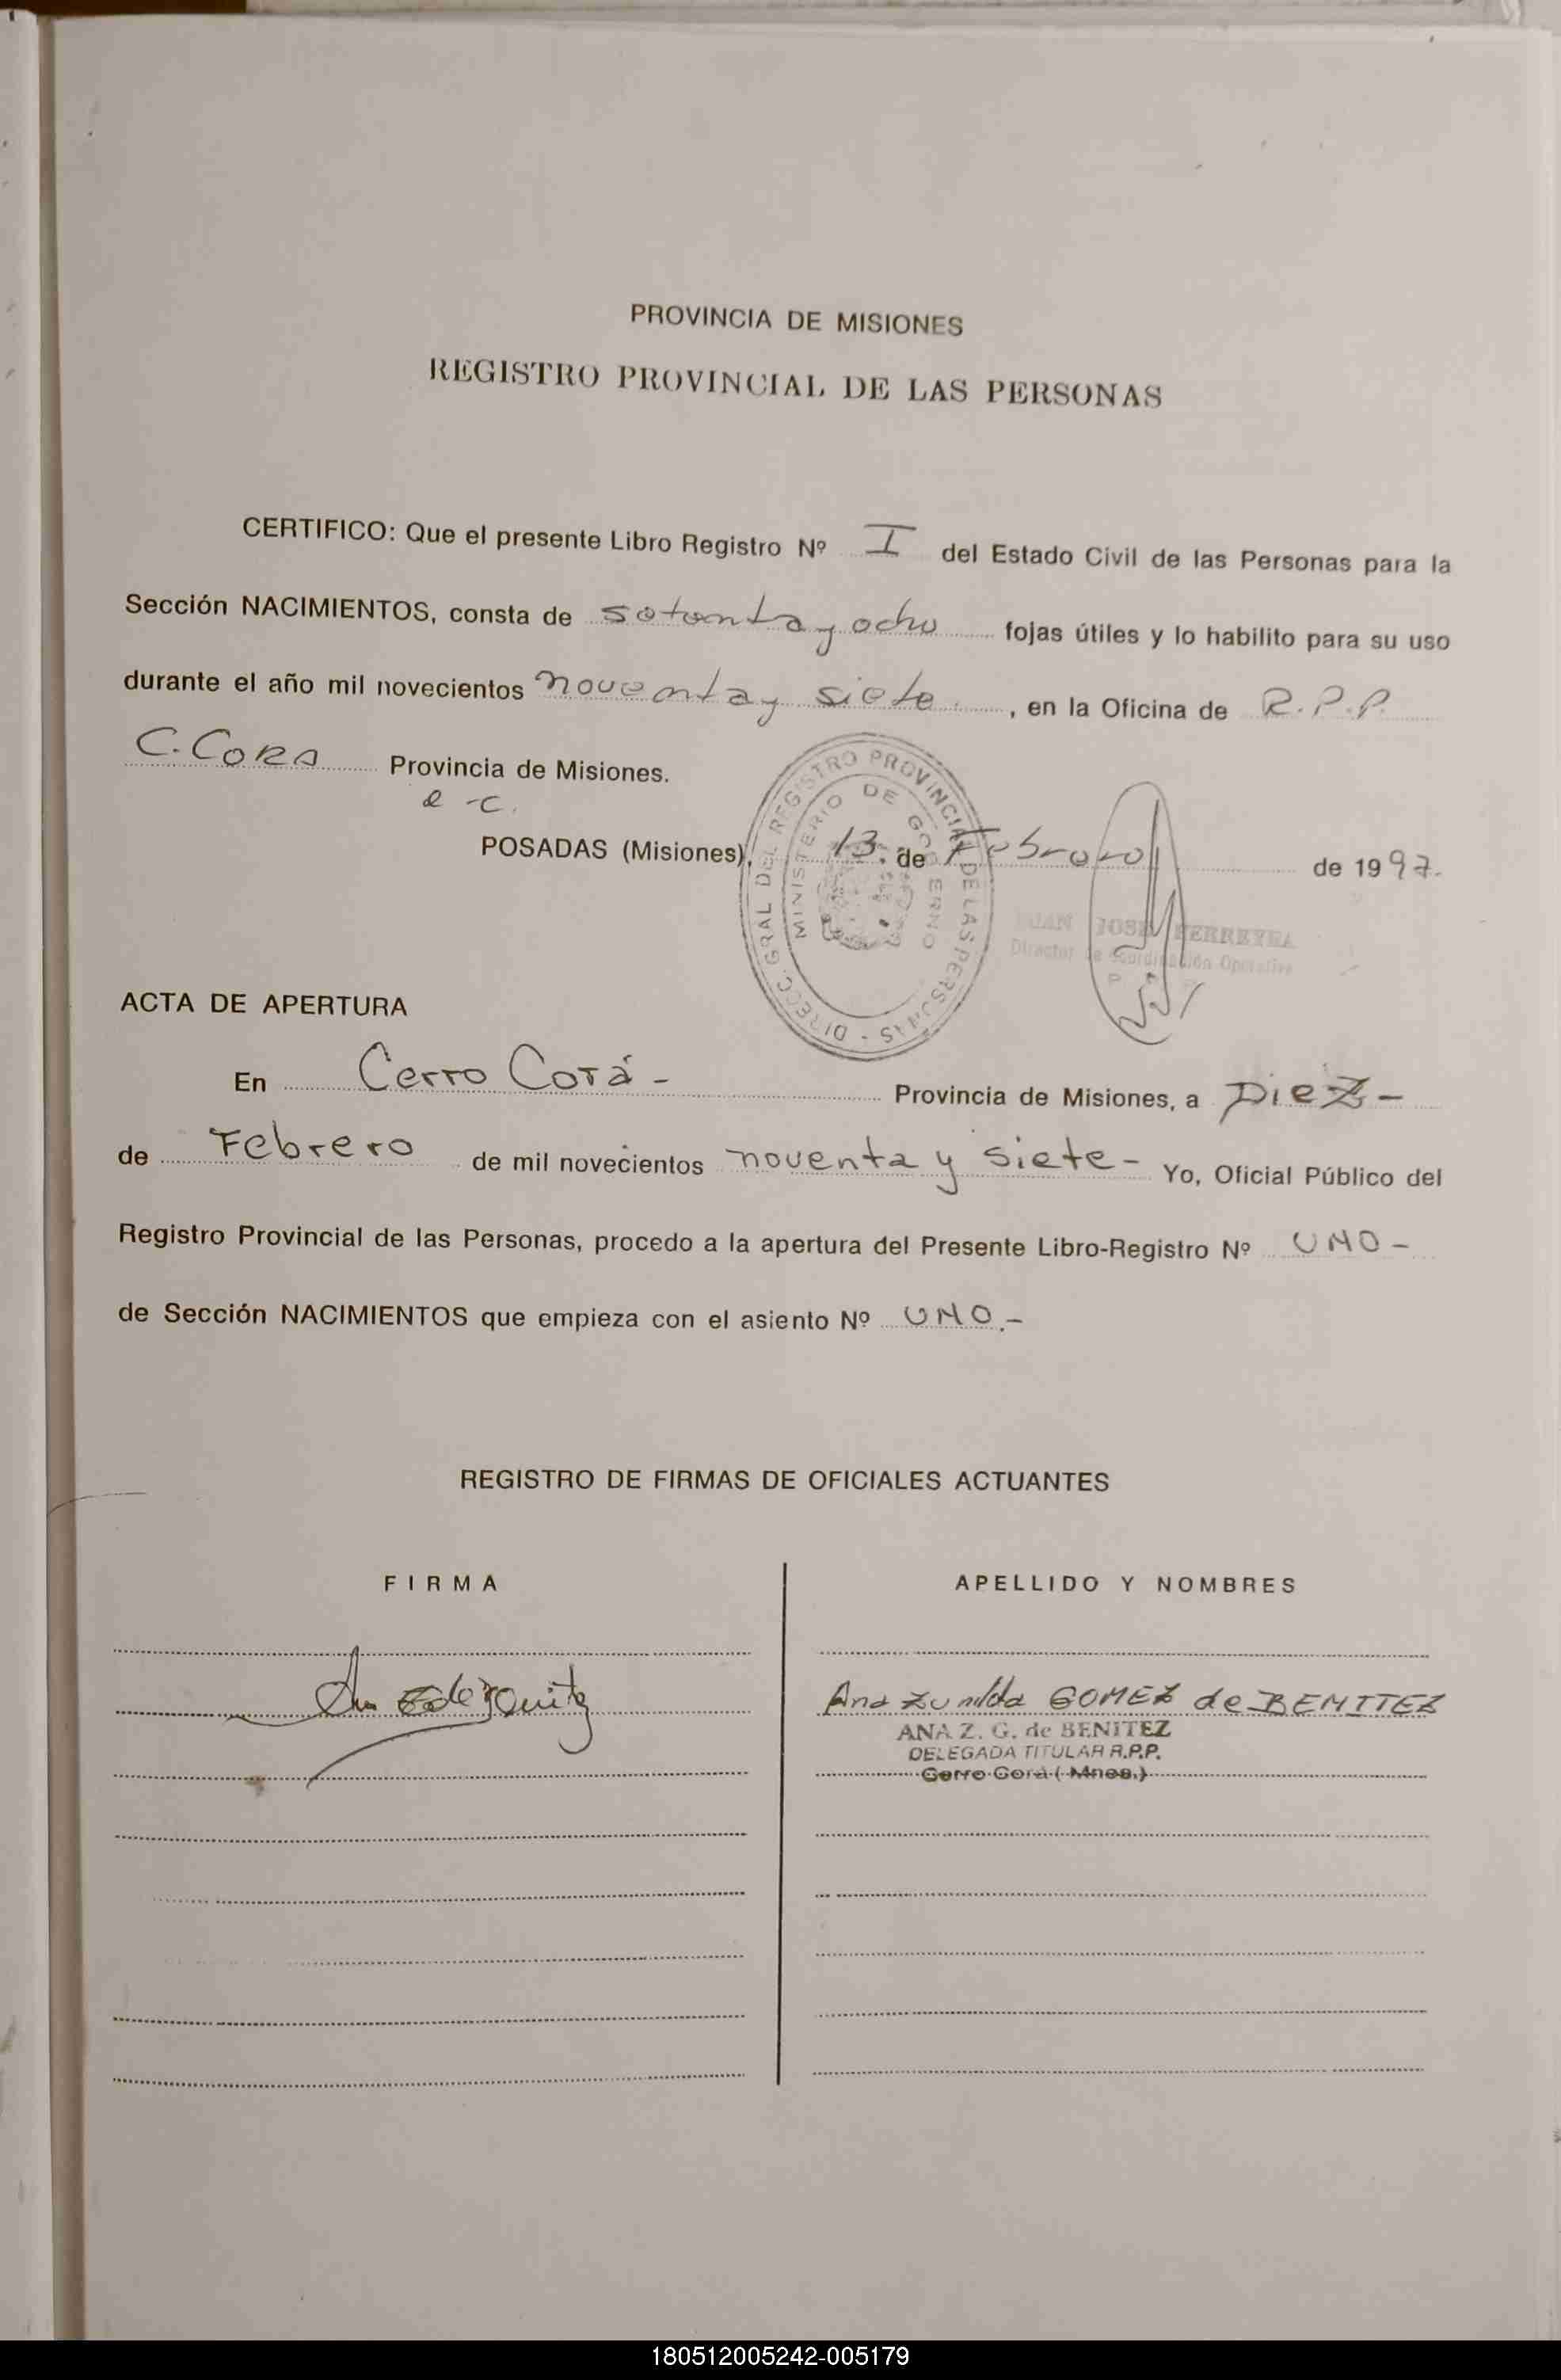 PROVINCIA DE MISIONES
REGISTRO PROVINCIAL DE LAS PERSONAS
CERTIFICO: Que el presente Libro Registro Nº I del Estado Civil de las Personas para la
Sección NACIMIENTOS, consta de setenta y ocho fojas útiles y lo habilito para su uso
durante el año mil novecientos noventa y siete, en la Oficina de R.P.P.
C. CORA Provincia de Misiones.
POSADAS (Misiones), 13 de Febrero de 1997.
DIRECC. GRAL DEL REGISTRO PROVINCIAL DE LAS PERSONAS -
MINISTERIO DE GOBIERNO
JUAN JOSE FERREYRA
Director de Coordinación Operativa
ACTA DE APERTURA
En Cerro Corá - Provincia de Misiones, a Diez -
de Febrero de mil novecientos noventa y siete - Yo, Oficial Público del
Registro Provincial de las Personas, procedo a la apertura del Presente Libro-Registro Nº UNO -
de Sección NACIMIENTOS que empieza con el asiento Nº UNO.-
REGISTRO DE FIRMAS DE OFICIALES ACTUANTES
FIRMA APELLIDO Y NOMBRES
Ana Zunilda GOMEZ de BENITEZ
ANA Z. G. de BENITEZ
DELEGADA TITULAR R.P.P.
Cerro Corá (Mnes.)
180512005242-005179